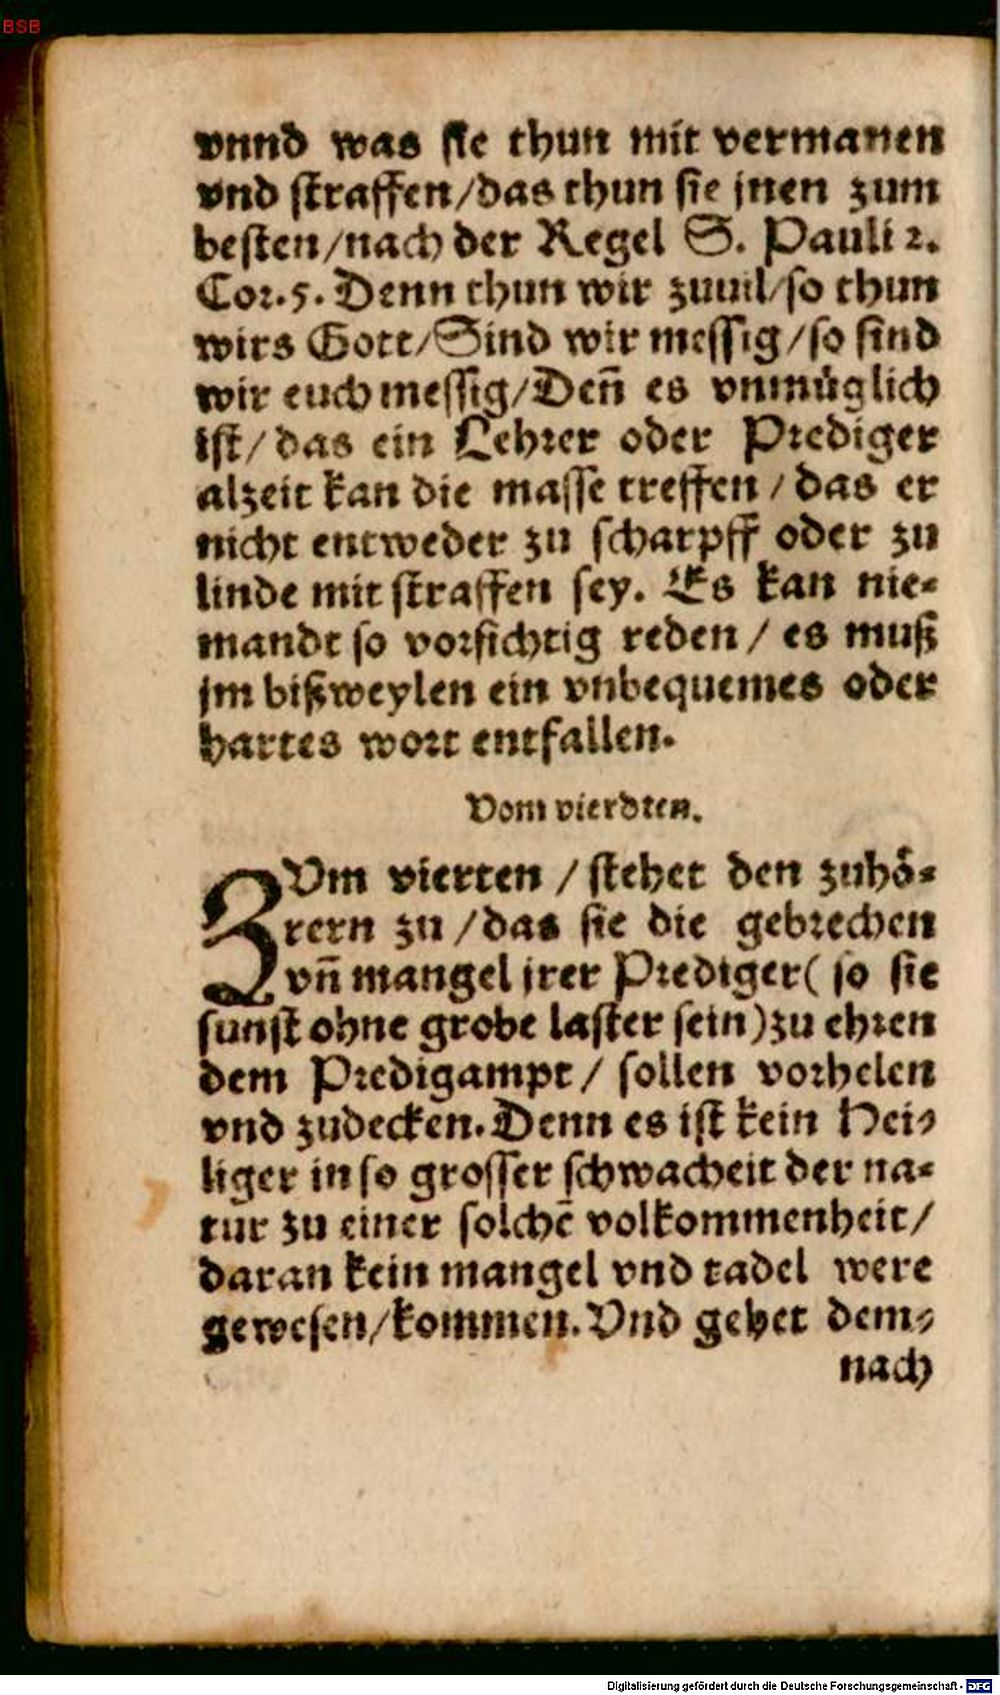 BSB
vnnd was sie thun mit vermanen
vnd straffen/das thun sie jnen zum
besten/nach der Regel S. Pauli 2.
Cor.5. Denn thun wir zuuil/so thun
wirs Gott/Sind wir messig/so sind
wir euch messig/Deñ es vnmüglich
ist/das ein Lehrer oder Prediger
alzeit kan die masse treffen/das er
nicht entweder zu scharpff oder zu
linde mit straffen sey. Es kan nie-
mandt so vorsichtig reden/es muß
jm bißweylen ein vnbequemes oder
hartes wort entfallen.
Vom vierdten.
ZVm vierten/stehet den zuhö-
rern zu/das sie die gebrechen
vñ mangel jrer Prediger(so sie
sunst ohne grobe laster sein)zu ehren
dem Predigampt/sollen vorhelen
vnd zudecken.Denn es ist kein Hei-
liger in so grosser schwacheit der na-
tur zu einer solchē volkommenheit/
daran kein mangel vnd tadel were
gewesen/kommen.Vnd gehet dem-
nach
Digitalisierung gefördert durch die Deutsche Forschungsgemeinschaft - DFG